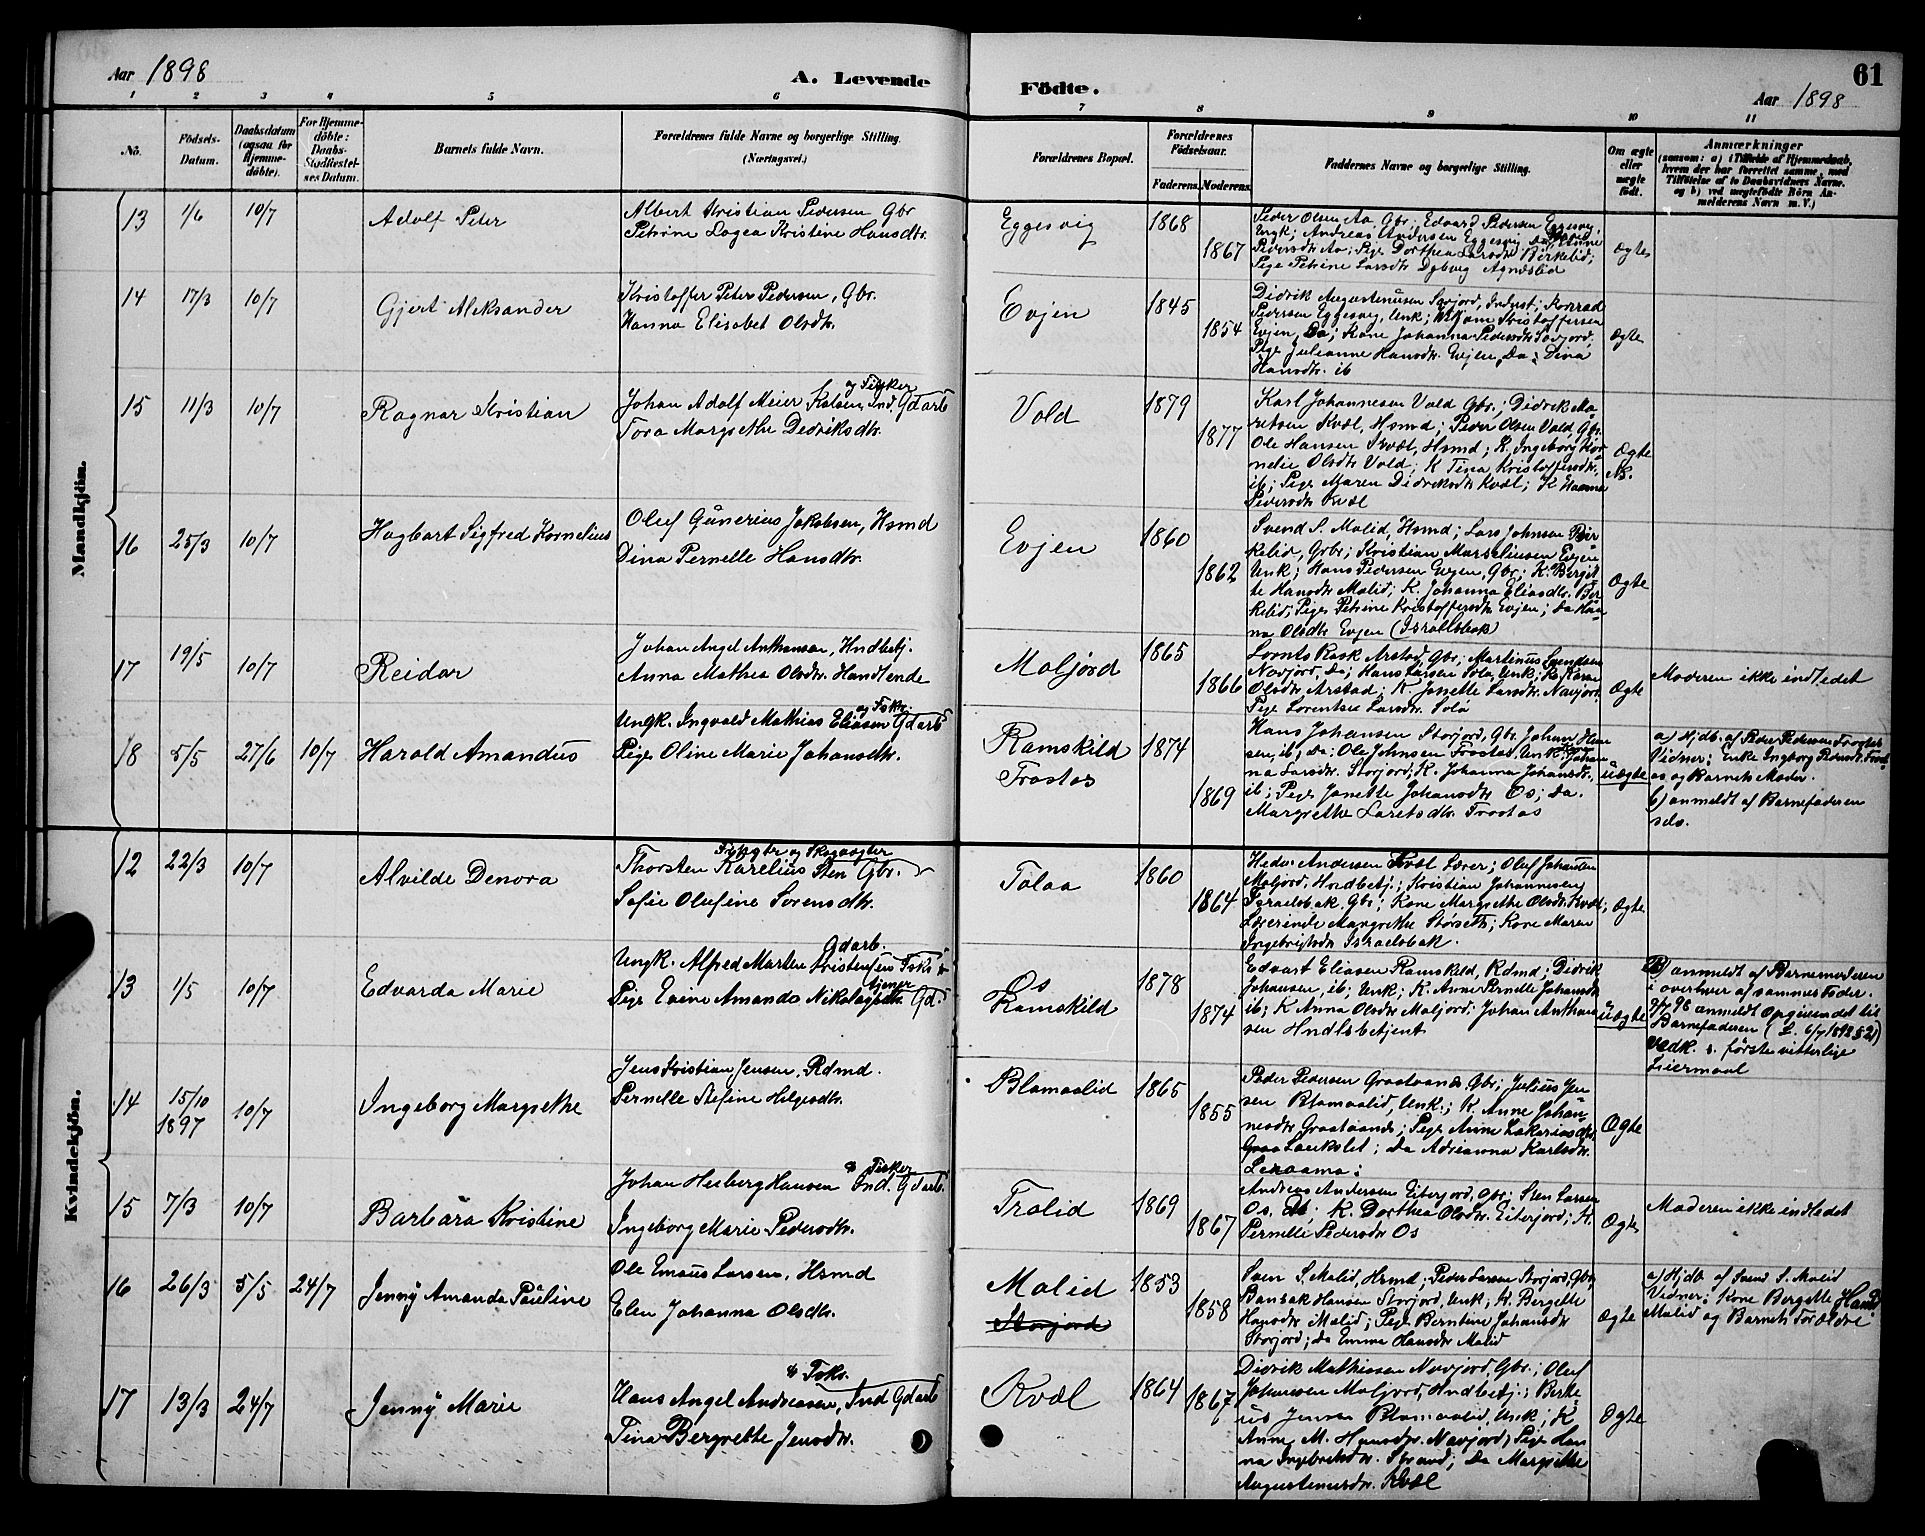 Aar 1898
A. Levende
Födte.
Aar 1898
61
1 2 3 4 5 6 7 8 9 10 11
No.
Födsels-
Datum.
Daabsdatum
(ogsaa for
Hjemme-
döbte).
For Hjemme-
döbte:
Daabs-
Stadfæstel-
ses Datum.
Barnets fulde Navn.
Forældrenes fulde Navne og borgerlige Stilling.
(Næringsvei.)
Forældrenes Bopæl.
Forældrenes
Födselsaar.
Faderens. Moderens.
Faddernes Navne og borgerlige Stilling.
Om ægte
eller
uægte
født.
Anmærkninger
(saasom: a) i Tilfælde af Hjemmedaab,
hvem der har forrettet samme, med
Tilföielse af to Daabsvidners Navne,
og b) ved uægtefödte Börn An-
melderens Navn m. V.)
Mandkjön.
13 1/6 10/7 Adolf Peter
Albert Kristian Pedersen Gbr
Petrine Lagea Kristine Hansdtr.
Eggesvig 1868 1867
Peder Olsen Aa Gbr; Edvard Pedersen Eggesvig,
Ungk; Andreas Andersen Eggesvig, Da;
Pedersdtr Aa; Pige Dorthea Larsdtr Birkelid;
Pige Petrine Larsdtr
Ægte
14 17/3 10/7 Gjert Aleksander
Kristoffer Peter Pedersen, Gbr.
Hanna Elisabet Olsdtr.
Evjen 1845 1854
Didrik Augustinusen Sørjord, Inderst; Konrad
Pedersen Eggesvig, Unk; Kristoffersen
Evjen, Da; Kone Johanna Pedersdtr Sørjord,
Pige Julianne Hansdtr. Evjen, Da; Dina
Hansdtr. ib
Ægte
15 11/3 10/7 Ragnar Kristian
og Fisker
Johan Adolf Meier Ind. Gdarb
Tora Margrethe Dedriksdtr.
Vold 1879 1877
Karl Johannesen Vold Gbr.; Didrik Ma-
retsen Kvæl, Hsmd; Peder Olsen Vold Gbr.
Ole Hansen Kvæl, Hsmd; K. Ingeborg Kor-
nelie Olsdtr Vold; K Tina Kristoffersdtr.
ib; Pige Maren Didriksdtr Kvæl; K Hanna
Pedersdtr Kvæl
Ægte
16 25/3 10/7 Hagbart Sigfred Kornelius
Oluf Gunerius Jakobsen, Hsmd
Dina Pernelle Hansdtr.
Evjen 1860 1862
Svend S. Molid, Hsmd; Lars Johnsen Bir-
kelid, Gbr; Kristian Marselinsen Evjen
Unk; Hans Pedersen Evjen, Gbr; K. Bergit-
te Hansdtr Molid; K. Johanna Eliasdtr. Bir-
kelid; Pige Petrine Kristoffersdtr Evjen; da Han-
na Olsdtr Evjen (Israelsbak)
Ægte
17 19/5 10/7 Reidar
Johan Angel Anthonsen, Hndbetj.
Anna Mathea Olsdtr. Handlende
Moljord 1865 1866
Lornts Rask Arstad, Gbr; Martinus Svendsen
Navjord, Da; Hans Larsen Sola, Unk; K. Karen
Olsdtr Arstad; K. Janette Larsdtr. Navjord,
Pige Lorentse Larsdtr. Sola
Ægte
Moderen ikke indledet
18 5/5 27/6 10/7 Harald Amandus
og Fskr.
Ungk. Ingvald Mathias Eliasen Gdarb
Pige Oline Marie Johansdtr.
Ramskild
Trostas
1874 1869
Hans Johansen Storjord, Gbr. Johan Han-
sen, ib, da; Ole Johnsen Trostas, Unk; Kone Johan-
na Larsdtr. Storjord; K. Johanna Johansdtr.,
ib; Pige Janette Johansdtr Os; da.
Margrethe Laretsdtr. Trostas
uægte
a) Hjdb. af Peder Pedersen Trostas
Vidner; Enke Ingborg Pedersdtr. Trost-
as og Barnets Moder.
b) anmeldt af Barnefaderen
selv.
Kvindekjön.
12 22/3 10/7 Alvilde Denora
og Skogvogter
Thorsten Karelius Sten Gbr.
Sofie Olufine Sorensdtr.
Tolaa 1860 1864
Hedv. Andersen Kvæl Lærer; Oluf Johansen
Moljord, Hndbetj.; Kristian Johannesen
Israelsbak, Gbr; Kone Margrethe Olsdtr Kvæl;
Lærerinde Margrethe Storseth; Kone Maren
Ingebrigtsdtr Israelsbak.
Ægte
13 1/5 10/7 Edvarda Marie
Gdarb.
Ungk. Alfred Marten Kristensen Fskr
tjener
Pige Eline Amanda Nikolaisdtr. Gd.
Os
Ramskild
1878 1874
Edvart Eliasen Ramskild, Rdmd; Didrik
Johansen, ib; Unk; K. Anne Pernelle Johansdtr
ib; K Anna Olsdtr Moljord; Johan Anthon-
sen Hndlsbetjent
uægte
b) anmeldt af Barnemoderen
i overhvær af sammes Fader.
9/7 98 anmeldt Opgivendet til
Barnefaderen (L. 6/7 1892 § 21)
vedk. s. første vitterlige
Leiermaal
14 15/10 1897 10/7 Ingeborg Margrethe
Jens Kristian Jensen, Rdmd.
Pernelle Stefine Helgesdtr.
Blamaalid 1865 1855
Peder Pedersen Graataand, Gbr; Julius Jen-
sen Blamaalid, Unk.; K. Anne Johan-
nesdtr Graataand; Pige Anne Zakariasdtr.
da Adrianna Karlsdtr.
Ægte
15 7/3 10/7 Barbara Kristine
& Fisker
Johan Hesberg Hansen Ind. Gdarb.
Ingeborg Marie Pedersdtr.
Trolid 1869 1867
Andreas Andersen Eiterjord, Gbr; Sten Larsen
Os. Da. K. Dorthea Olsdtr. Eiterjord; K.
Pernelle Pedersdtr Os
Ægte
Moderen ikke indledet
16 26/3 5/5 24/7 Jenny Amanda Pauline
Ole Emaus Larsen, Hsmd
Elen Johanna Olsdtr.
Molid
Storjord
1853 1858
Sven S. Molid, Hsmd; Peder Larsen Storjord, Gbr.
Bansak Hansen Storjord, Unk; K. Bergette
Hansdtr Molid; Pige Berntine Johansdtr
Storjord; da Emma Hansdtr Molid
Ægte
a) Hjdb. af Svend S. Molid
Vidner; Kone Bergette Hansd
Molid og Barnets Forældre
17 13/3 24/7 Jenny Marie
& Fskr.
Hans Angel Andreasen, Ind Gdarb
Tina Bergrette Jensdtr.
Kvæl 1864 1867
Didrik Mathiesen Navjord, Gbr.; Oluf
Johansen Moljord, Hndbetj.; Berte-
us Jensen Blamaalid, Unk; K
Anne M. Hansdtr. Navjord; Pige Han-
na Ingebretsdtr. Strand; Da Margrethe
Augustinusdtr. Kvæl
Ægte